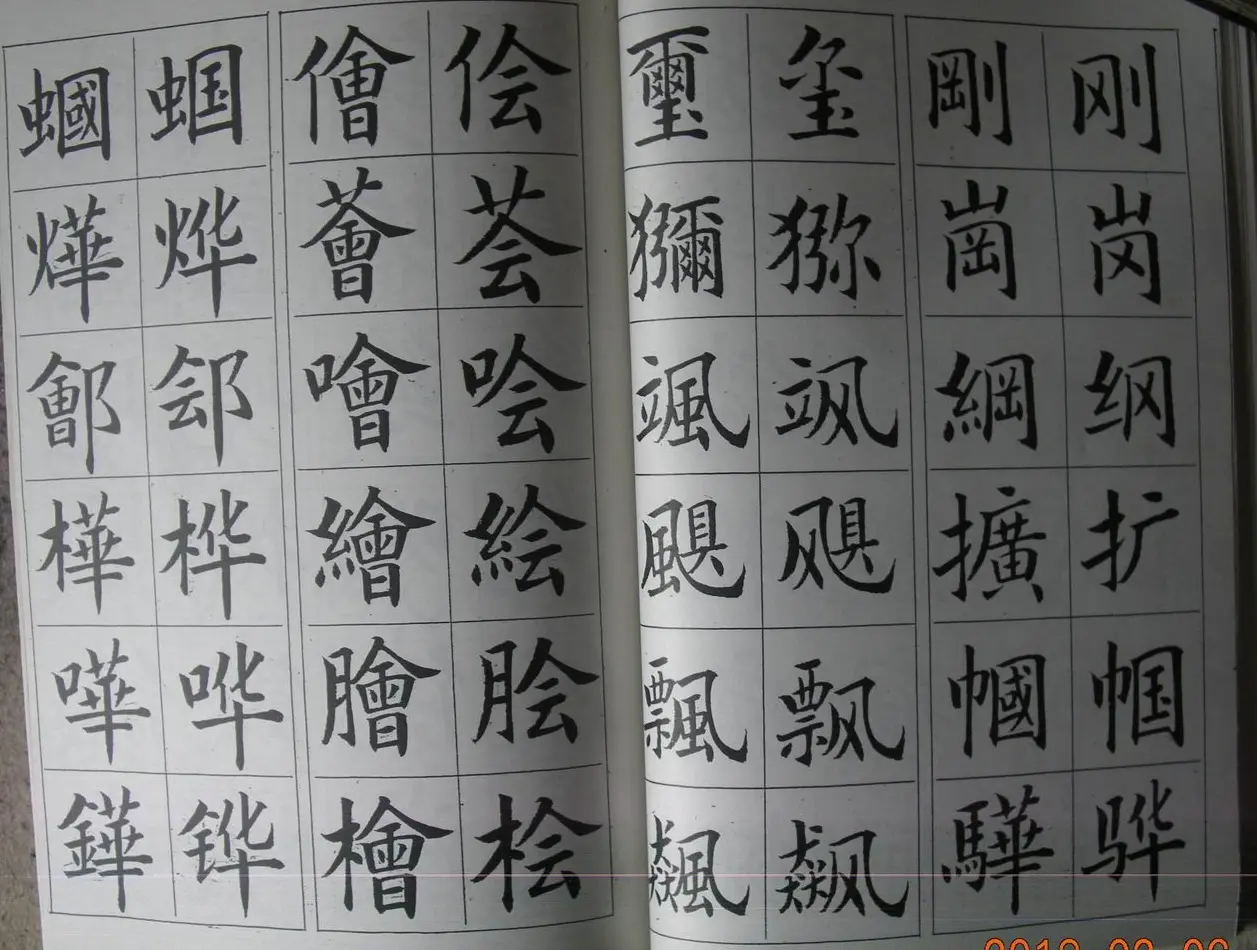 蟈 蝈 儈 侩 璽 玺 剛 刚
燁 烨 薈 荟 獼 猕 崗 岗
鄶 郐 噲 哙 颯 飒 綱 纲
樺 桦 繪 絵 颶 飓 擴 扩
嘩 哗 膾 脍 飄 飘 幗 帼
鏵 铧 檜 桧 飆 飙 驊 骅